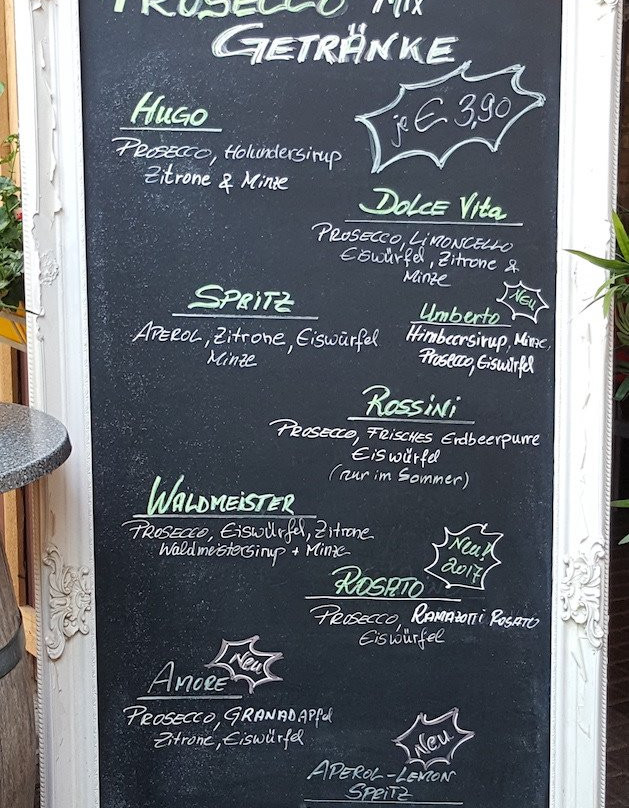 PROSECCO MIX
GETRÄNKE
je € 3,90
HUGO
PROSECCO, Holundersirup
Zitrone & Minze
DOLCE Vita
PROSECCO, LIMONCELLO
Eiswürfel, Zitrone &
Minze
SPRITZ
APEROL, Zitrone, Eiswürfel
Minze
NEU
Umberto
Himbeersirup, Minze,
Prosecco, Eiswürfel
ROSSINI
PROSECCO, FRISCHES Erdbeerpurre
Eiswürfel
(nur im Sommer)
WALDMEISTER
PROSECCO, Eiswürfel, Zitrone
Waldmeistersirup + Minze
Neu!
2017
ROSATO
PROSECCO, RAMAZOTTI ROSATO
Eiswürfel
Neu
AMORE
PROSECCO, GRANADAPfel
Zitrone, Eiswürfel
Neu
APEROL-LEMON
SPRITZ